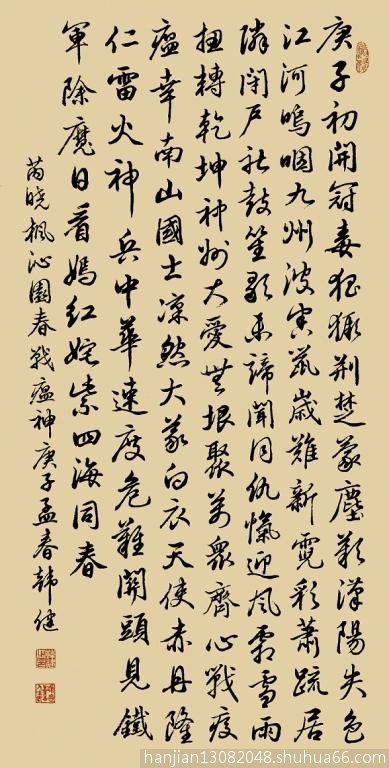 庚子初開冠毒猖獗荊楚蒙塵歎漢陽失色
江河嗚咽九州波突鼠歲難新霓彩蕭疏居
隣闭戶社鼓笙歌未諦聞同仇愾迎風霜雪雨
扭轉乾坤神州大愛無垠聚萬衆齊心戰疫
瘟幸南山國士凜然大義白衣天使赤丹隆
仁雷火神兵中華速度危難關頭見鐵
軍除魔日看嫣紅姹紫四海同春
芮曉楓沁園春戰瘟神庚子孟春韩健
hanjian13082048.shuhua66.com